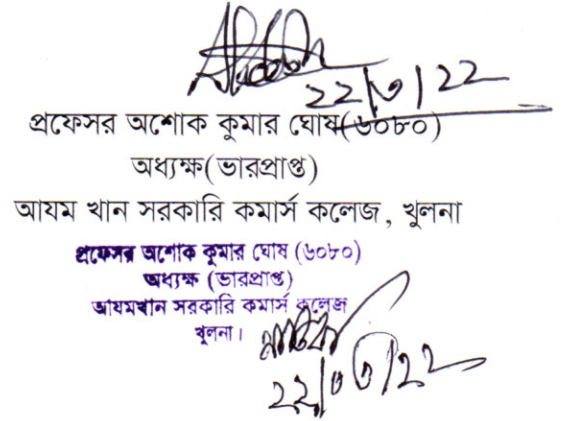 ২২/৩/২২
প্রফেসর অশোক কুমার ঘোষ(৬০৮০)
অধ্যক্ষ(ভারপ্রাপ্ত)
আযম খান সরকারি কমার্স কলেজ, খুলনা
প্রফেসর অশোক কুমার ঘোষ (৬০৮০)
অধ্যক্ষ (ভারপ্রাপ্ত)
আযমখান সরকারি কমার্স কলেজ
খুলনা।
২২/০৩/২২